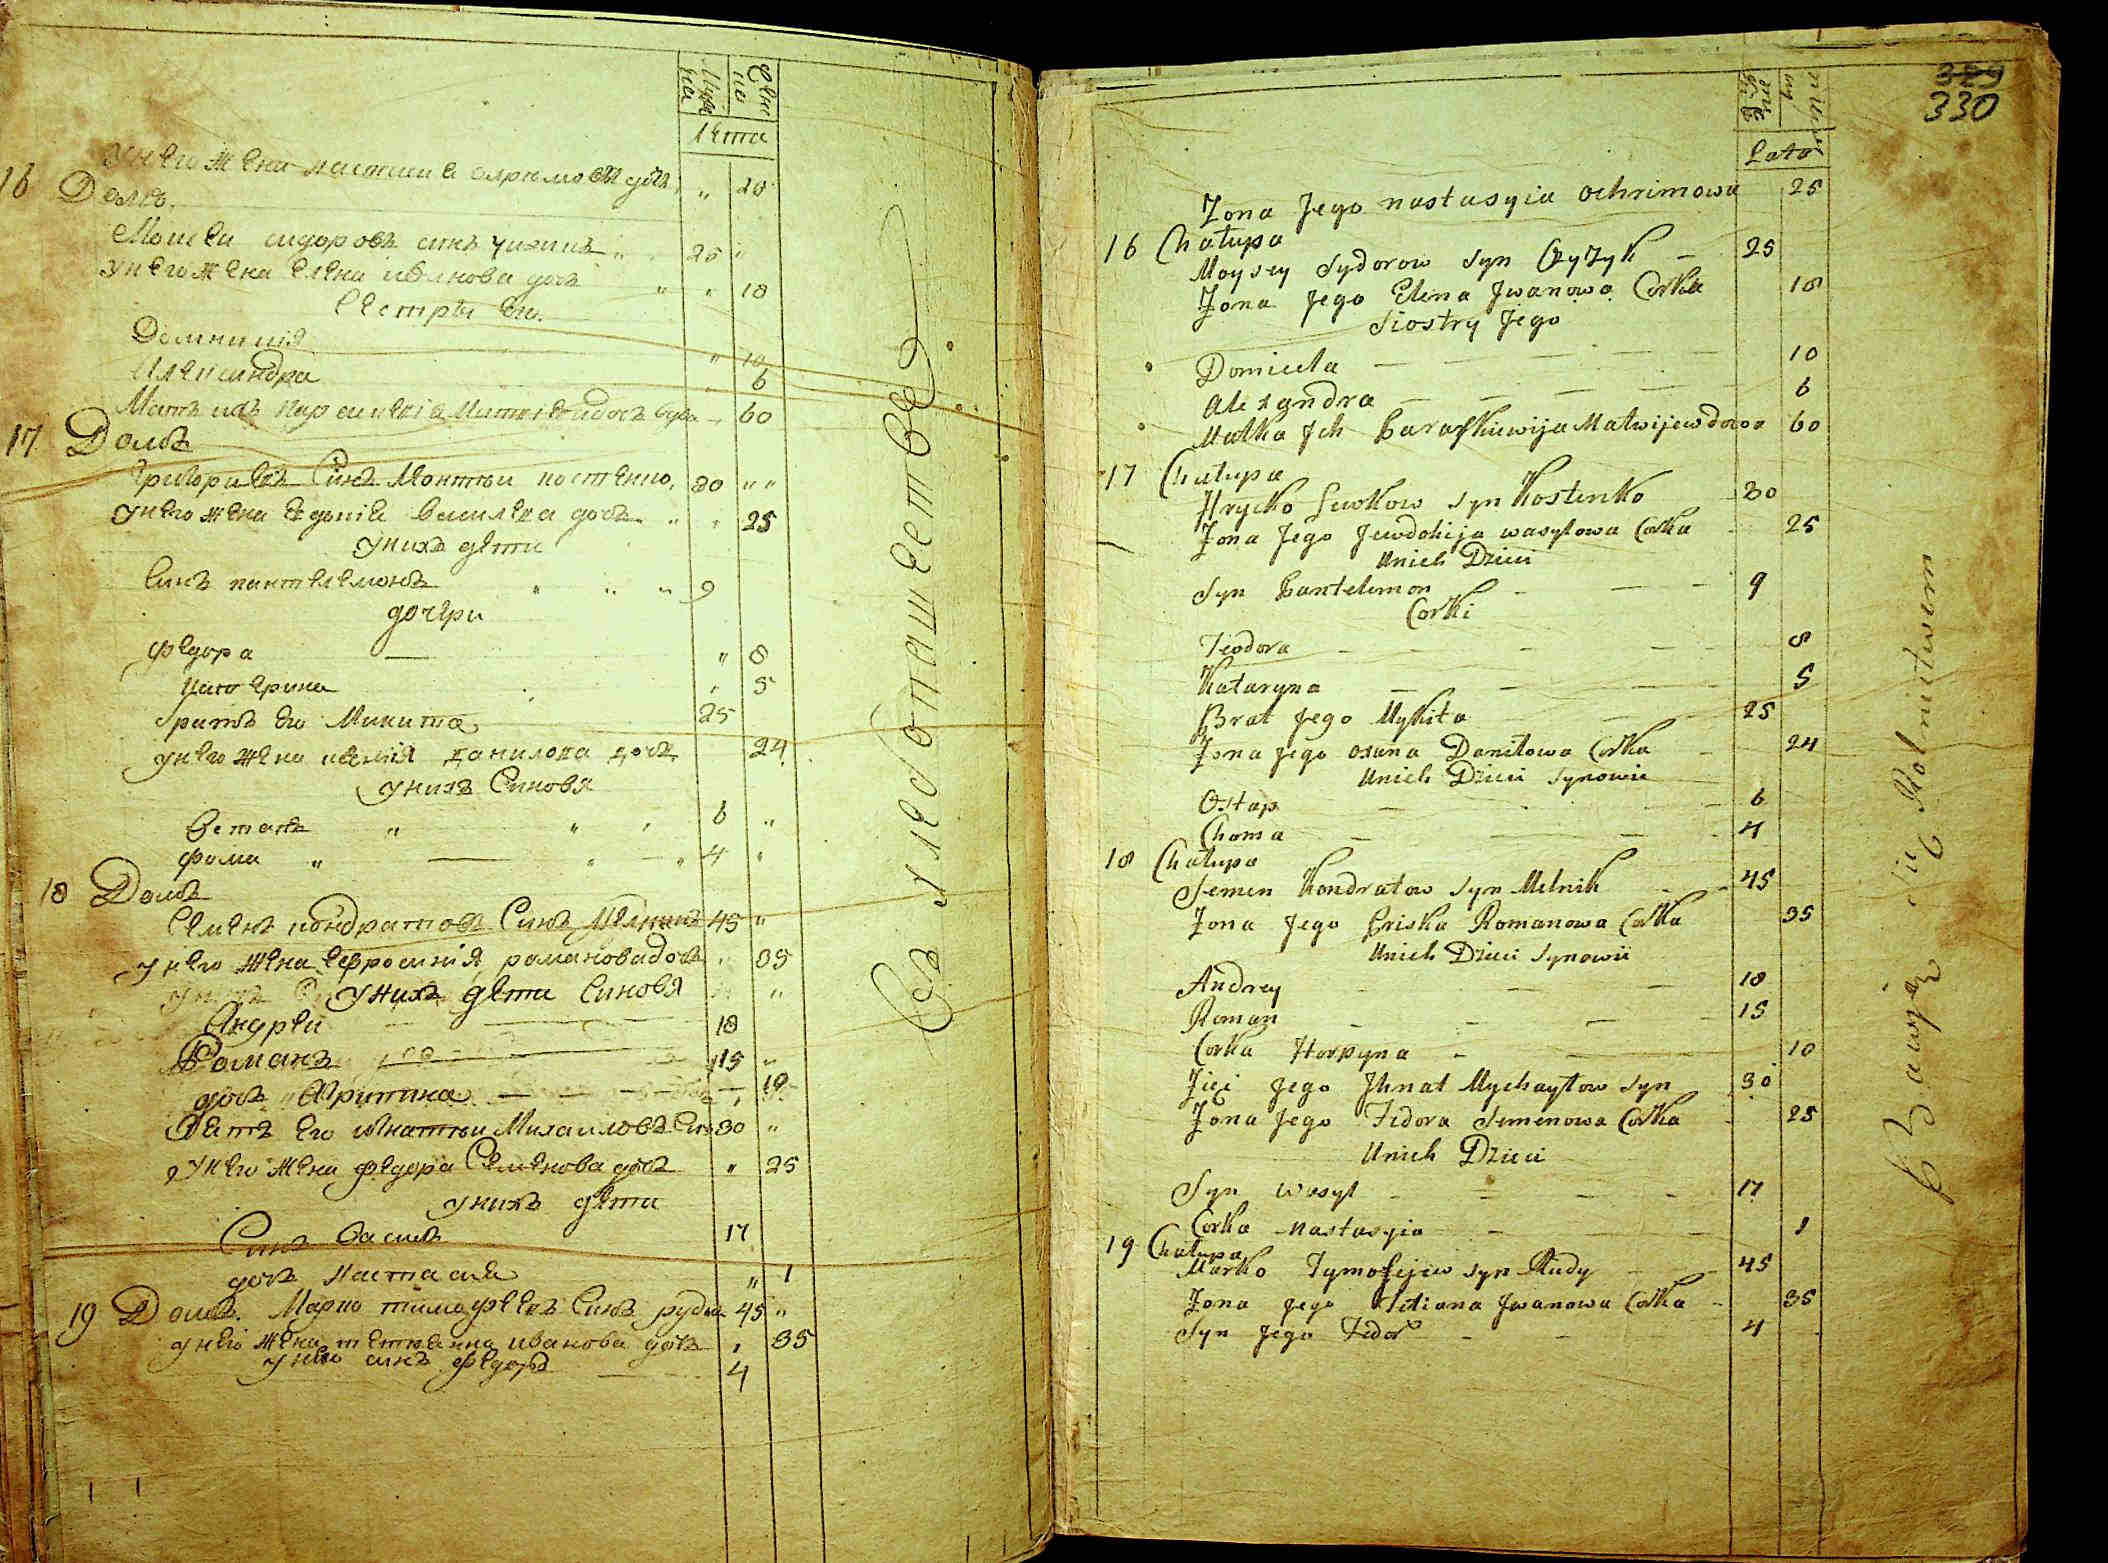 Муже
ска
Женс
ка
Лѣта
У него жена настасиѣ охримова дочь " 25
16 Домъ.
Моисеи сидоровъ синъ чижикъ 25 "
У него жена елена иванова дочь " 18
Сестры его.
Домникия " 10
Александра 6
Мать ихъ параскевіа матвіева дочь 60
17 Домъ
Григориевъ Синъ костенко, 30 " "
У него жена евдокіѣ василева дочь " 25
У нихъ дѣти
Синъ пантелемонъ " " " 9
дочери
Федора " 8
Катерина " 5
братъ его Микита 25
у него жена ксениѣ данилова дочь 24
У нихъ Синовя
Остапъ " " 6 "
Фома " " 4 "
18 Домъ
Семенъ кондратовъ Синъ Мелникъ 45 "
у него жена ефросиниѣ романова дочь " 35
У нихъ дѣти Синовя "
Андреи 18
Романъ 15 "
дочь 10
Зять его игнатъи Михаиловъ Синъ 30 "
У него жена федора Семенова дочь " 25
У нихъ дѣти
Синъ василь 17
дочь настасиѣ " 1
19 Домъ. Марко тимофеевъ Синъ рудъи 45 "
у него жена иванова дочь " 35
у него синъ федоръ 4
Со
329
330
Lata
Zona Jego nastasyia ochrimowa 25
16 Chałupa
Moysey Sydorow Syn Czyżyk 25
Zona Jego Elena Jwanowa Corka 18
Siostry Jego
Domicela 10
Alexandra 6
Matka Jch Paraskiewija Matwijewdowa 60
17 Chałupa
Hrycko Lewkow Syn Kostenko 30
Zona Jego Jewdokija wasylowa Corka 25
Unich Dzieci
Syn Pantelimon 9
Corki
Fiodora 8
Kataryna 5
Brat Jego Mykita 25
Zona Jego oxana Daniłowa Corka 24
Unich Dzieci Synowie
Ostap 6
Choma 4
18 Chałupa
Semen Kondratow Syn Melnik 45
Zona Jego Priska Romanowa Corka 35
Unich Dzieci Synowie
Andrey 18
Roman 15
Corka Horpyna 10
Zięć Jego Jhnat Mychayłow Syn 30
Zona Jego Fedora Semenowa Corka 25
Unich Dzieci
Syn wasyl 17
Corka nastasyia 1
19 Chałupa
Marko Tymofijew Syn Rudy 45
Zona Jego Tetiana Jwanowa Corka 35
Syn Jego Fedor 4
Bawią się Rolnictwem